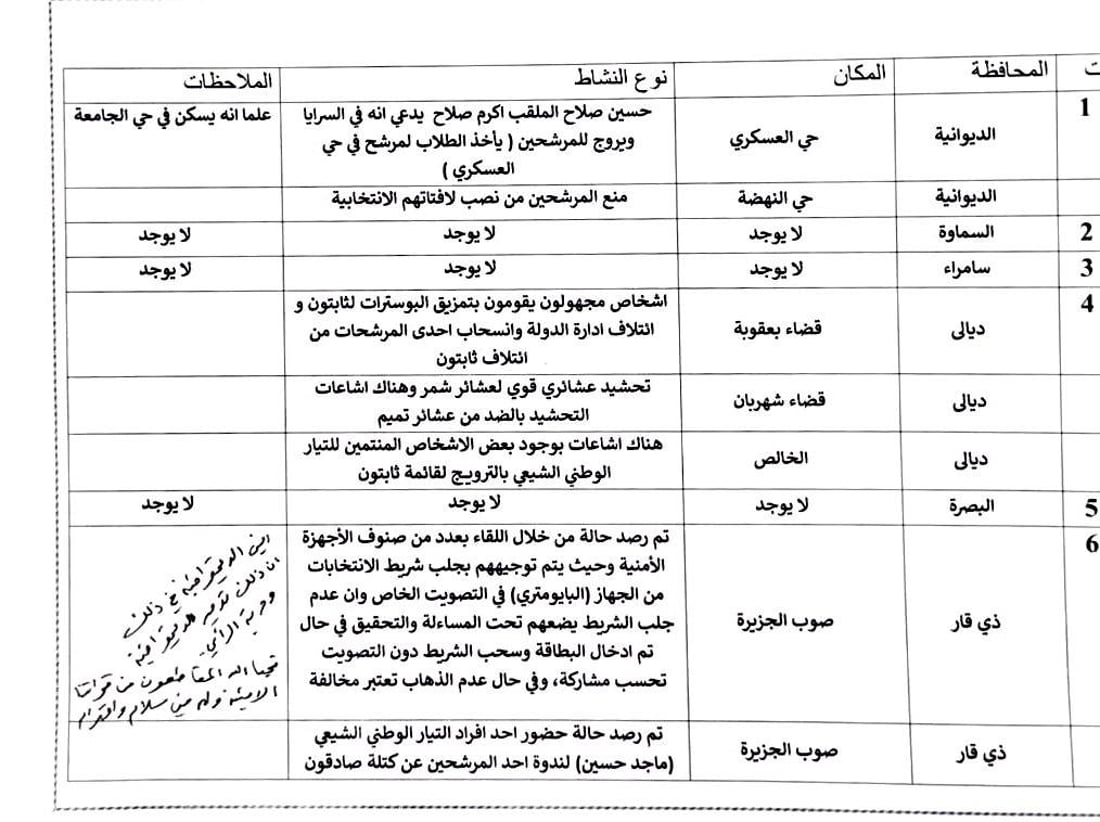 ت المحافظة المكان نوع النشاط الملاحظات
1 الديوانية حي العسكري حسين صلاح الملقب اكرم صلاح يدعي انه في السرايا علما انه يسكن في حي الجامعة
ويروج للمرشحين ( يأخذ الطلاب لمرشح في حي
العسكري )
الديوانية حي النهضة منع المرشحين من نصب لافتاتهم الانتخابية
2 السماوة لا يوجد لا يوجد لا يوجد
3 سامراء لا يوجد لا يوجد لا يوجد
4 ديالى قضاء بعقوبة اشخاص مجهولون يقومون بتمزيق البوسترات لثابتون و
ائتلاف ادارة الدولة وانسحاب احدى المرشحات من
ائتلاف ثابتون
ديالى قضاء شهربان تحشيد عشائري قوي لعشائر شمر وهناك اشاعات
التحشيد بالضد من عشائر تميم
ديالى الخالص هناك اشاعات بوجود بعض الاشخاص المنتمين للتيار
الوطني الشيعي بالترويج لقائمة ثابتون
5 البصرة لا يوجد لا يوجد لا يوجد
6 ذي قار صوب الجزيرة تم رصد حالة من خلال اللقاء بعدد من صنوف الأجهزة
الأمنية وحيث يتم توجيههم بجلب شريط الانتخابات
من الجهاز (البايومتري) في التصويت الخاص وان عدم
جلب الشريط يضعهم تحت المساءلة والتحقيق في حال
تم ادخال البطاقة وسحب الشريط دون التصويت
تحسب مشاركة، وفي حال عدم الذهاب تعتبر مخالفة
اين الديمقراطية في ذلك
ان ذلك تدمير للديمقراطية
وحرية الرأي.
فحيا الله المقاطعون من قواتنا
الامنية وله مني سلام واحترام
ذي قار صوب الجزيرة تم رصد حالة حضور احد افراد التيار الوطني الشيعي
(ماجد حسين) لندوة احد المرشحين عن كتلة صادقون